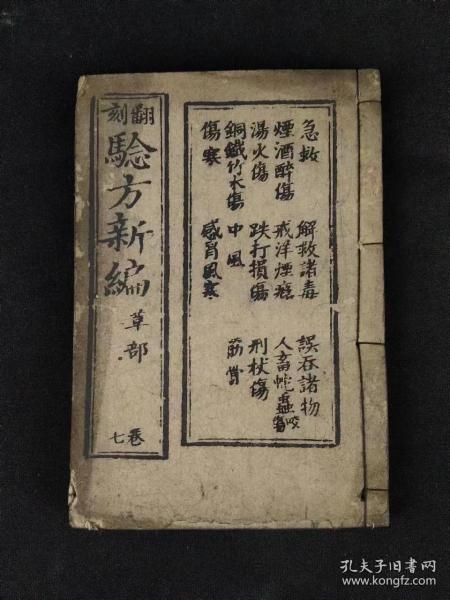 急救 解救諸毒 誤吞諸物
煙酒醉傷 戒洋煙癮 人畜蛇蟲咬傷
湯火傷 跌打損傷 刑杖傷
銅鐵竹木傷 中風 筋骨
傷寒 感冒風寒
翻刻
驗方新編
草部
卷七
孔夫子旧书网
www.kongfz.com